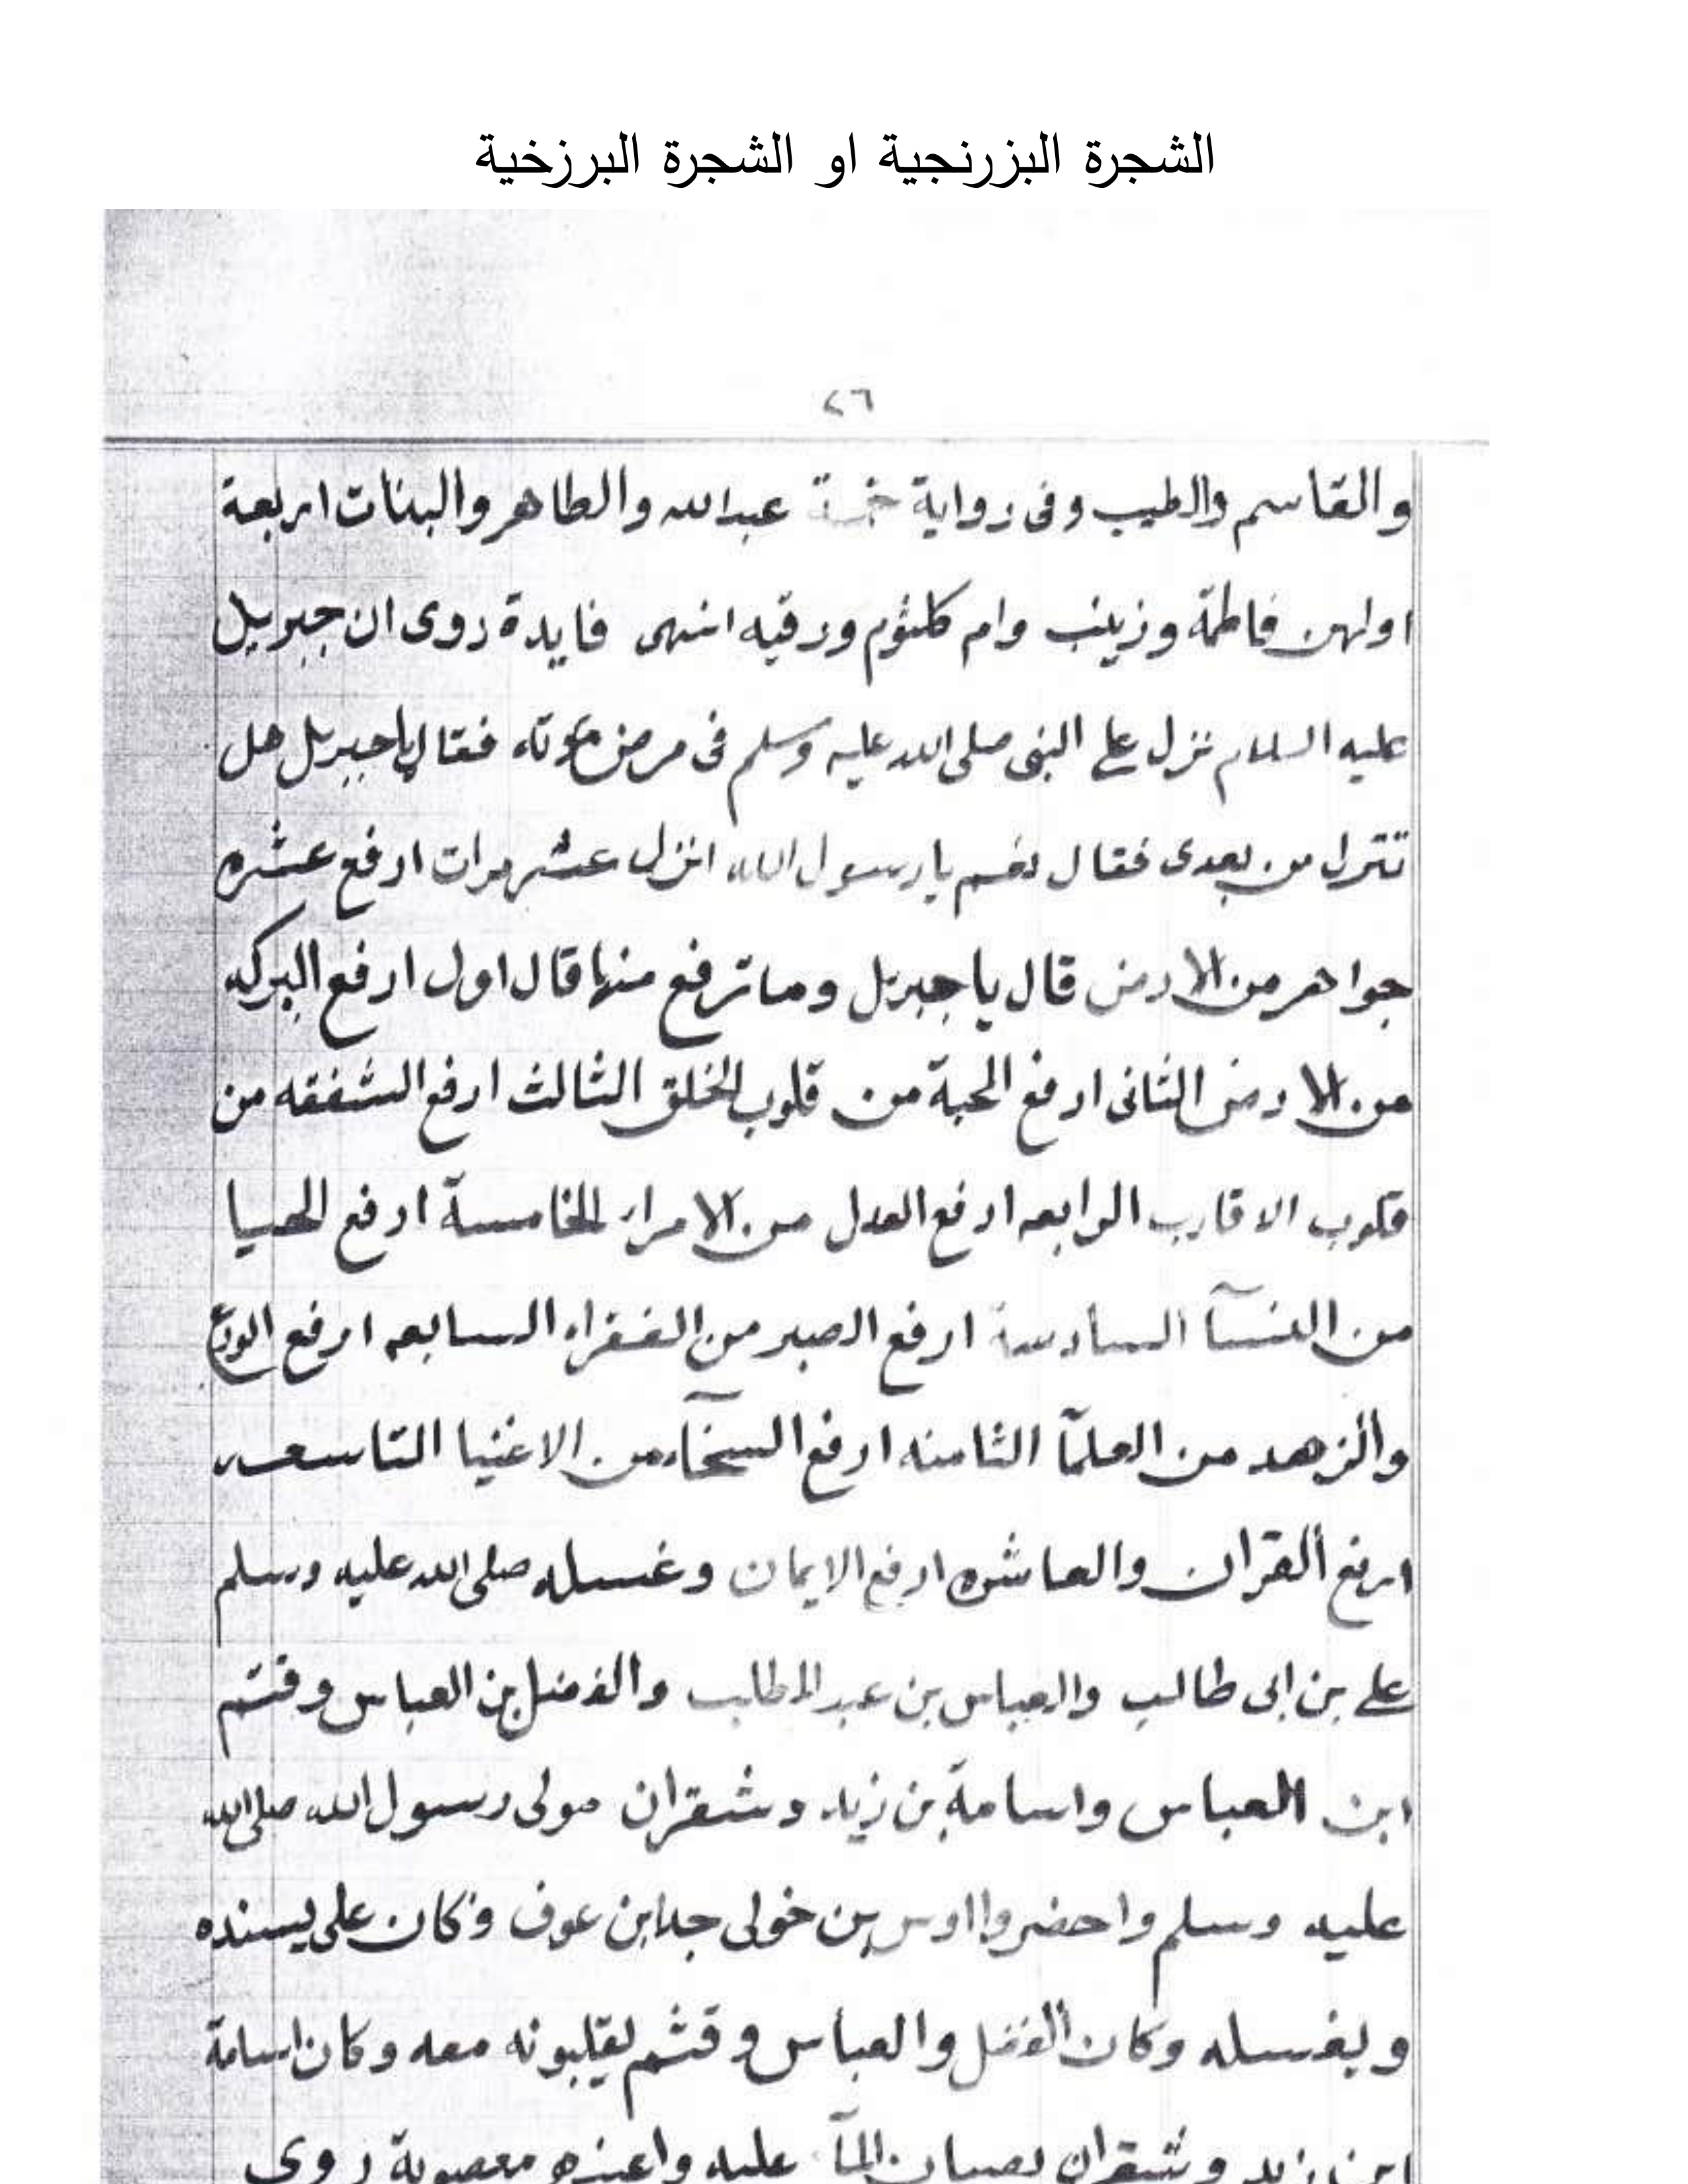 الشجرة البزرنجية او الشجرة البرزخية
٢٦
والقاسم والطيب وفى رواية خمسة عبدالله والطاهر والبنات اربعة
اولهن فاطمة وزينب وام كلثوم ورقيه انتهى فايدة روى ان جبريل
عليه السلام نزل على النبى صلى الله عليه وسلم فى مرض موته فقال ياجبريل هل
تنزل من بعدى فقال نعم يا رسول الله انزل عشر مرات ارفع عشره
جواهر من الارض قال يا جبريل وما ترفع منها قال اول ارفع البركه
من الارض الثانى ارفع المحبة من قلوب الخلق الثالث ارفع الشفقه من
قلوب الاقارب الرابعه ارفع العدل من الامراء الخامسة ارفع الحيا
من النسآ السادسة ارفع الصبر من الفقراء السابعه ارفع الورع
والزهد من العلمآ الثامنه ارفع السخآء من الاغنيا التاسعه
ارفع القران والعاشره ارفع الايمان وغسله صلى الله عليه وسلم
على بن ابى طالب والعباس بن عبد المطلب والفضل بن العباس وقثم
ابن العباس واسامة بن زيد وشقران مولى رسول الله صلى الله
عليه وسلم واحضروا اوس بن خولى جد ابن عوف وكان على يسنده
ويغسله وكان الفضل والعباس وقثم يقلبونه معه وكان اسامة
ابن زيد وشقران يصبان المآ عليه واعينهم معصوبة روى